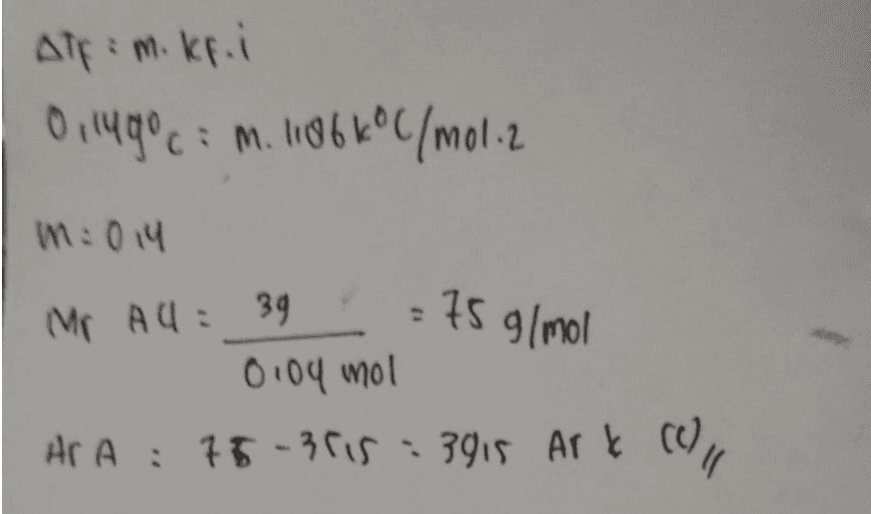 ΔTf = m. kf. i
0,149°C = m. 1,86 k°C/mol.2
m = 0,4
Mr ACl = 3g / 0,04 mol = 75 g/mol
Ar A : 75 - 35,5 = 39,5 Ar k (C) //